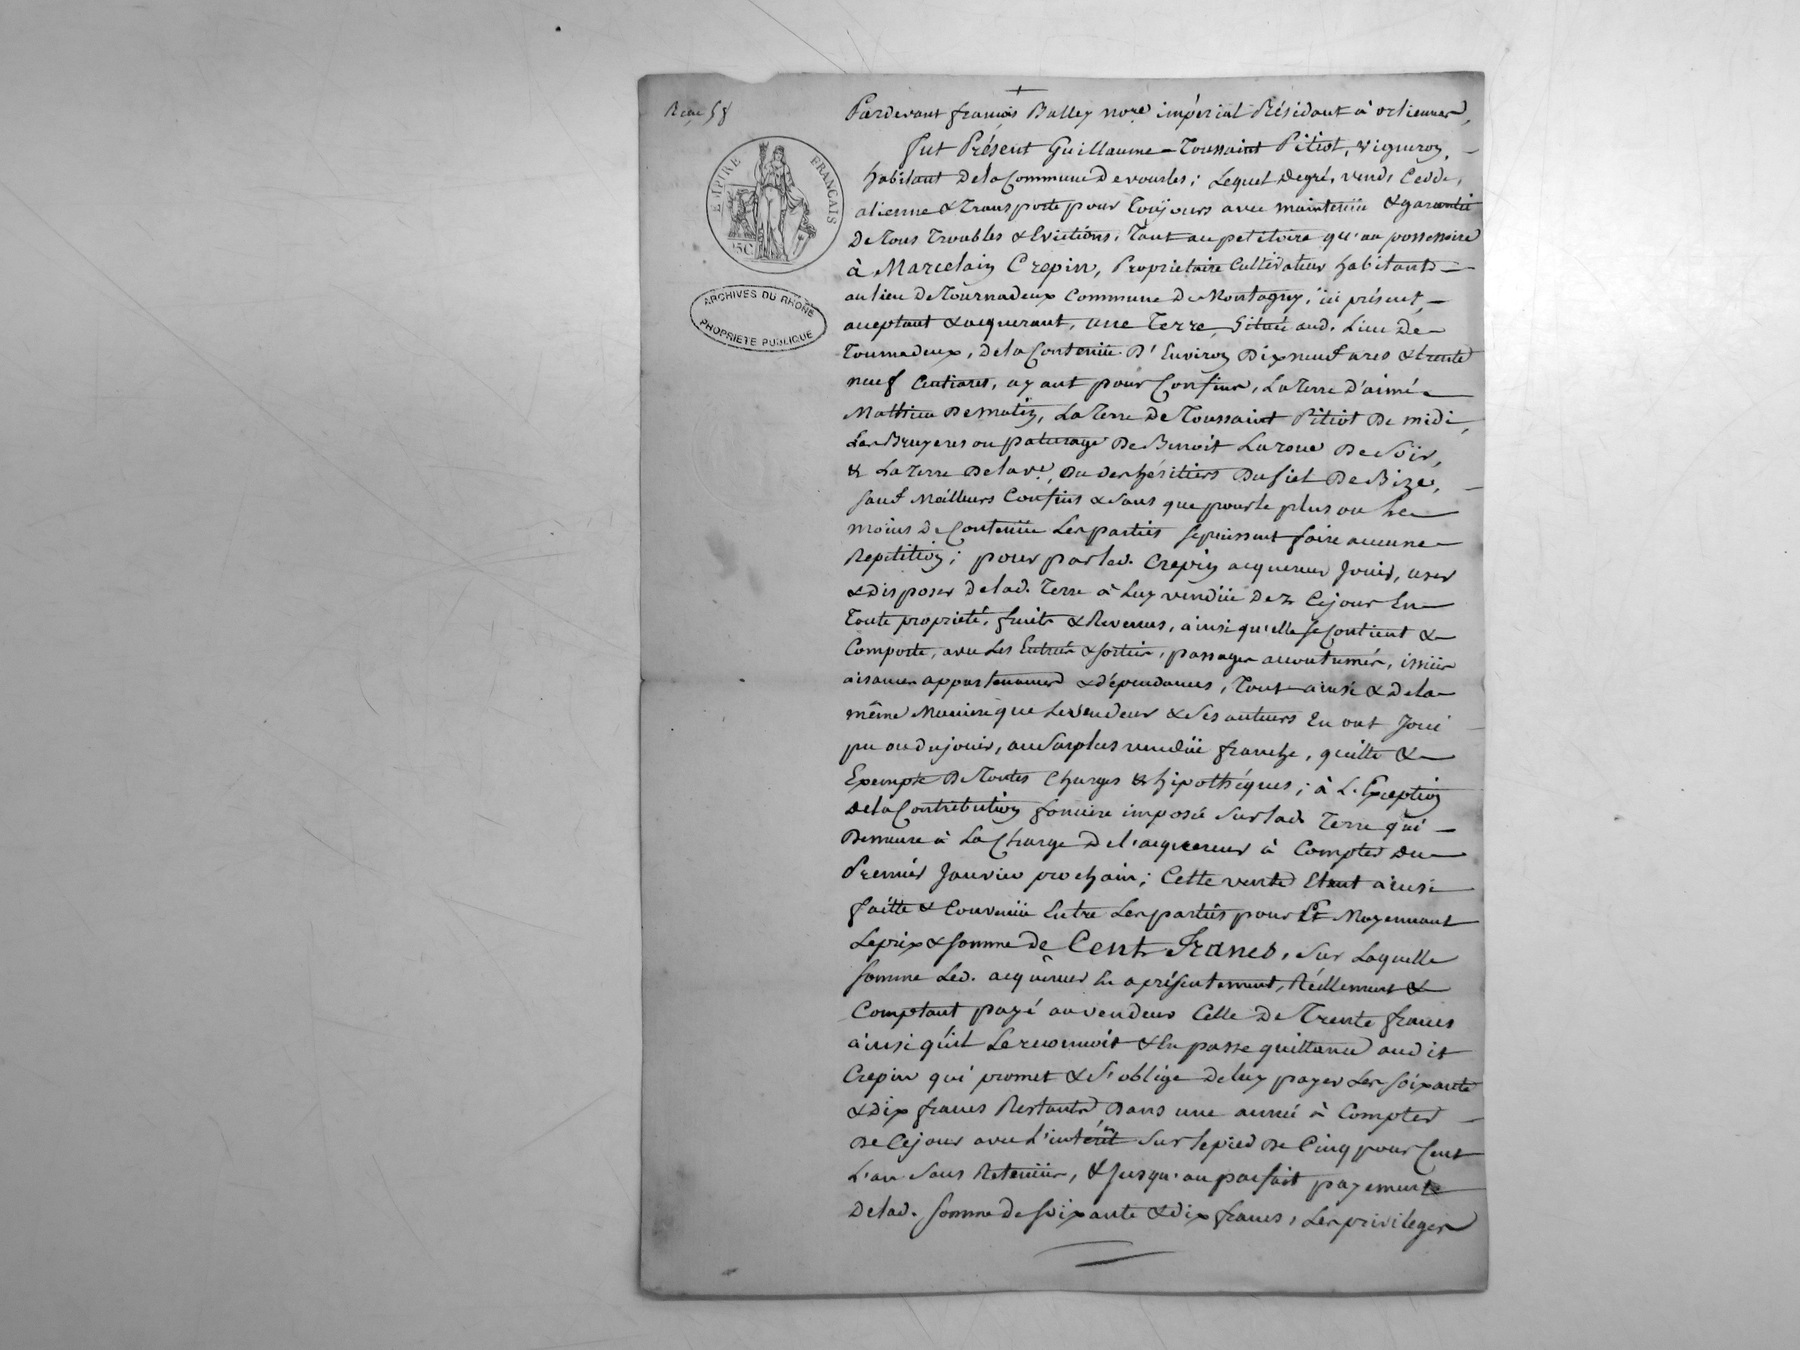 EMPIRE FRANÇAIS
75 C
ARCHIVES DU RHÔNE
PROPRIÉTÉ PUBLIQUE
Pardevant françois Balley nore. impérial Résidant à orlienas,
fut Présent Guillaume-Toussaint Pitiot, vigneron,
habitant dela Commune De vourles; Lequel degré, vend, Cedde,
alienne & Transporte pour Toujours avec maintenüe & garantie
De Tous Troubles & Evictions, Tant au petitoire qu'au possessoire
à Marcelain Crepin, Proprietaire Cultivateur habitant
au lieu De Tournadeux Commune De Montagny, ici présent,
aceptant & acquerant, une Terre Situé aud. Lieu De
Tournadeux, dela Contenüe D'Environ Dix neuf ares & trente
neuf Centiares, ayant pour Confins, La Terre D'aimé
Mathieu De matin, La Terre De Toussaint Pitiot De midi,
Les Bruyeres ou paturage De Benoit Laroue De Soir,
& La Terre De la ve. ou des héritiers Dufiet De Bize,
sauf Meilleurs Confins & sans que pour le plus ou Le
moins de Contenüe Les parties se puissent faire aucune
Repetition; pour par led. Crepin acquereur Jouir, user
& disposer de lad. Terre à Luy vendüe dez Ce jour En
Toute propriété, fruits & Revenus, ainsi qu'elle se Contient &
Comporte, avec Les Entrées & sorties, passages accoutumés, issües
aisances appartenances & dépendances, Tout ainsi & dela
même Maniere que Le Vendeur & Ses auteurs En ont Joui
pu ou du jouir, au Surplus vendüe franche, quitte &
Exempte De Toutes Charges & hipothéques; à L'Exception
dela Contribution fonciere imposée sur lad. Terre qui
Demeure à La Charge De l'acquereur à Compter du
Premier Janvier prochain; Cette vente Etant ainsi
faitte & Convenüe Entre Les parties pour Et Moyennant
Le prix & somme de Cent Francs, sur Laquelle
somme Led. acquereur En a présentement, Réellement &
Comptant payé au vendeur Celle De Trente francs
ainsi qu'il Le reconnoit & En passe quittance audit
Crepin qui promet & s'oblige De luy payer Les soixante
& dix francs Restants Dans une année à Compter
De Ce jour avec L'intérêt sur le pied De Cinq pour Cent
L'an Sans Retenüe, & Jusqu'au parfait payement
De lad. somme de soixante & dix francs, Les privileges